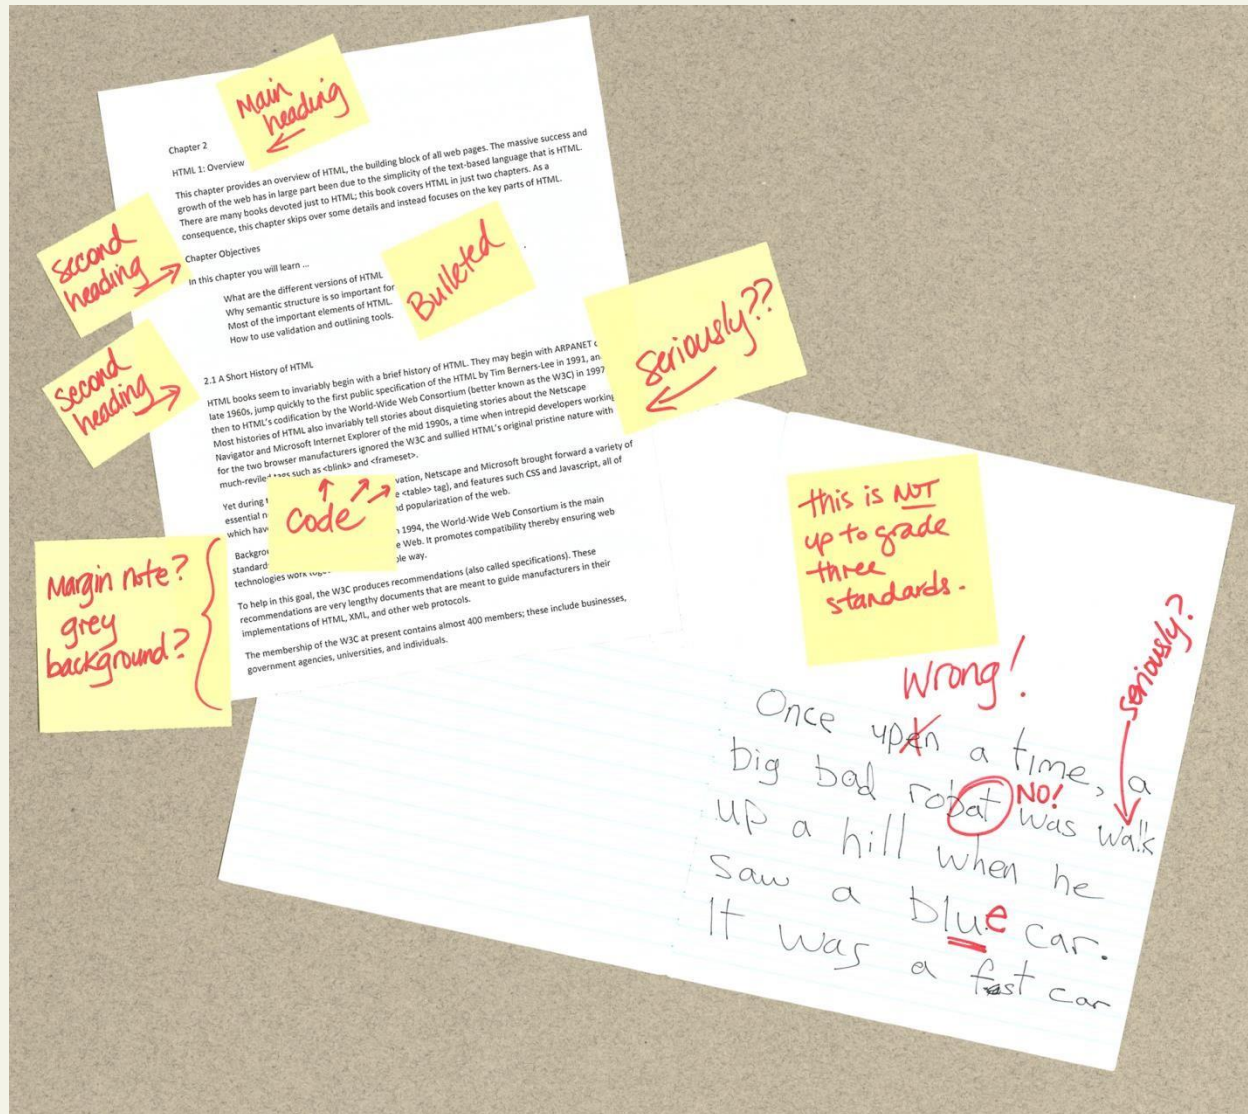 Main
heading
Chapter 2
HTML 1: Overview
This chapter provides an overview of HTML, the building block of all web pages. The massive success and
growth of the web has in large part been due to the simplicity of the text-based language that is HTML.
There are many books devoted just to HTML; this book covers HTML in just two chapters. As a
consequence, this chapter skips over some details and instead focuses on the key parts of HTML.
second
heading
Chapter Objectives
In this chapter you will learn ...
What are the different versions of HTML
Why semantic structure is so important for
Most of the important elements of HTML.
How to use validation and outlining tools.
Bulleted
Seriously??
second
heading
2.1 A Short History of HTML
HTML books seem to invariably begin with a brief history of HTML. They may begin with ARPANET
late 1960s, jump quickly to the first public specification of the HTML by Tim Berners-Lee in 1991, an
then to HTML's codification by the World-Wide Web Consortium (better known as the W3C) in 1997
Most histories of HTML also invariably tell stories about disquieting stories about the Netscape
Navigator and Microsoft Internet Explorer of the mid 1990s, a time when intrepid developers working
for the two browser manufacturers ignored the W3C and sullied HTML's original pristine nature with
much-reviled tags such as <blink> and <frameset>.
Yet during vation, Netscape and Microsoft brought forward a variety of
essential <table> tag), and features such CSS and Javascript, all of
which have nd popularization of the web.
Code
Backgrou 1994, the World-Wide Web Consortium is the main
standard e Web. It promotes compatibility thereby ensuring web
technologies work ple way.
To help in this goal, the W3C produces recommendations (also called specifications). These
recommendations are very lengthy documents that are meant to guide manufacturers in their
implementations of HTML, XML, and other web protocols.
The membership of the W3C at present contains almost 400 members; these include businesses,
government agencies, universities, and individuals.
Margin note?
grey
background?
this is NOT
up to grade
three
standards.
Wrong!
seriously?
Once upen a time, a
big bad robat was walk
NO!
up a hill when he
saw a blue car.
It was a fast car